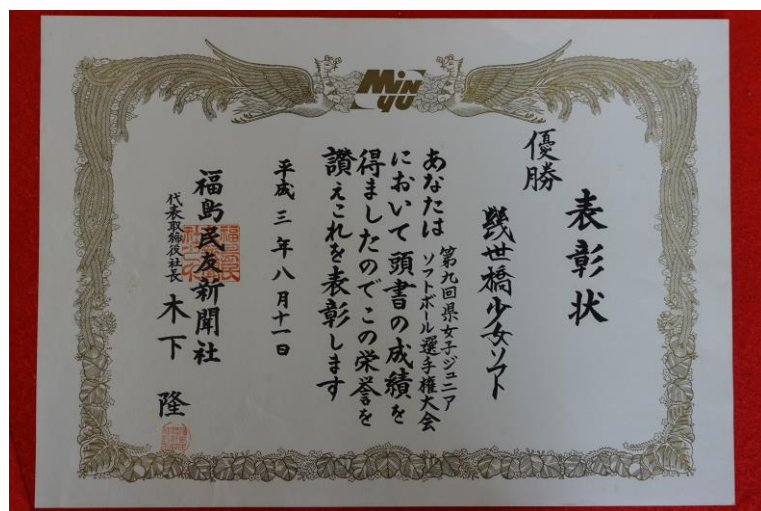 MINYU
表彰状
優勝
幾世橋少女ソフト
あなたは第九回県女子ジュニア
ソフトボール選手権大会
において頭書の成績を
得ましたのでこの栄誉を
讃えこれを表彰します
平成三年八月十一日
福島民友新聞社
代表取締役社長
木下隆